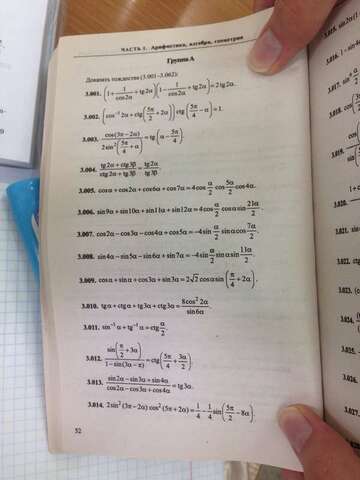 ЧАСТЬ I. Арифметика, алгебра, геометрия
Группа А
Доказать тождества (3.001–3.062):
3.001. (1 + 1/cos2α + tg2α)(1 − 1/cos2α + tg2α) = 2tg2α.
3.002. (cos⁻¹ 2α + ctg(5π/2 + 2α)) ctg(5π/4 − α) = 1.
3.003. cos(3π − 2α) / (2sin²(5π/4 + α)) = tg(α − 5π/4).
3.004. (tg2α + ctg3β)/(ctg2α + tg3β) = tg2α/tg3β.
3.005. cosα + cos2α + cos6α + cos7α = 4cos α/2 cos 5α/2 cos4α.
3.006. sin9α + sin10α + sin11α + sin12α = 4cos α/2 cosα sin 21α/2.
3.007. cos2α − cos3α − cos4α + cos5α = −4sin α/2 sinα cos 7α/2.
3.008. sin4α − sin5α − sin6α + sin7α = −4sin α/2 sinα sin 11α/2.
3.009. cosα + sinα + cos3α + sin3α = 2√2 cosα sin(π/4 + 2α).
3.010. tgα + ctgα + tg3α + ctg3α = 8cos² 2α / sin6α.
3.011. sin⁻¹ α + tg⁻¹ α = ctg α/2.
3.012. sin(π/2 + 3α) / (1 − sin(3α − π)) = ctg(5π/4 + 3α/2).
3.013. (sin2α − sin3α + sin4α)/(cos2α − cos3α + cos4α) = tg3α.
3.014. 2sin² (3π − 2α) cos² (5π + 2α) = 1/4 − 1/4 sin(5π/2 − 8α).
52
3.015. sin
3.016. 1 − sin4
3.017. cos
3.018.
3.019.
sin
3.020.